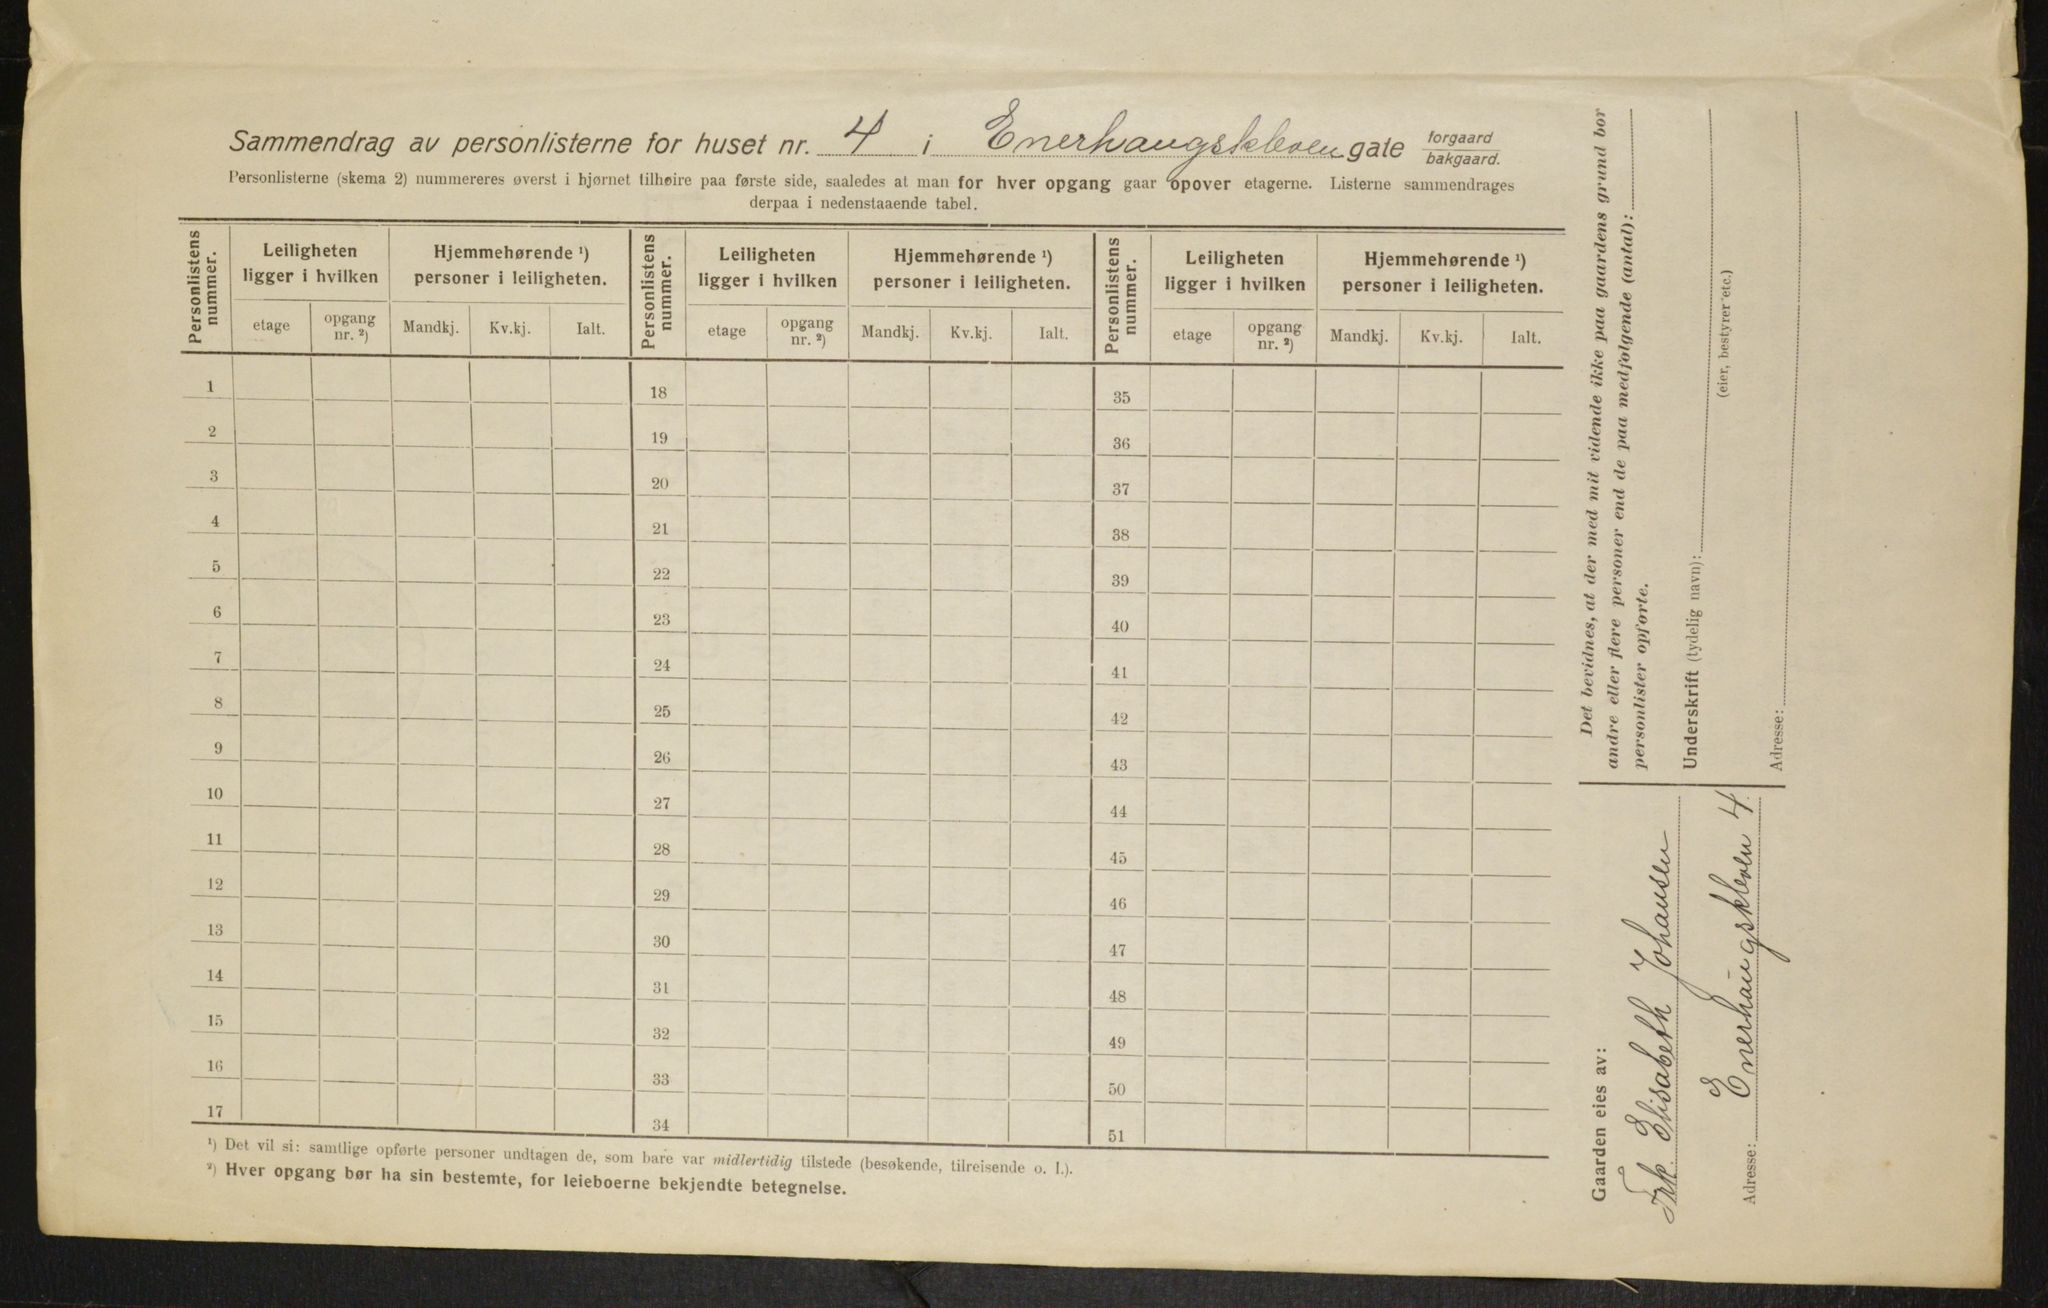 Sammendrag av personlisterne for huset nr. 4 i Enerhaugskleven gate forgaard bakgaard.
Personlisterne (skema 2) nummereres øverst i hjørnet tilhøire paa første side, saaledes at man for hver opgang gaar opover etagerne. Listerne sammendrages
derpaa i nedenstaaende tabel.
Personlistens nummer. Leiligheten ligger i hvilken Hjemmehørende ¹) personer i leiligheten. Personlistens nummer. Leiligheten ligger i hvilken Hjemmehørende ¹) personer i leiligheten. Personlistens nummer. Leiligheten ligger i hvilken Hjemmehørende ¹) personer i leiligheten.
etage opgang nr. ²) Mandkj. Kv.kj. Ialt. etage opgang nr. ²) Mandkj. Kv.kj. Ialt. etage opgang nr. ²) Mandkj. Kv.kj. Ialt.
1 18 35
2 19 36
3 20 37
4 21 38
5 22 39
6 23 40
7 24 41
8 25 42
9 26 43
10 27 44
11 28 45
12 29 46
13 30 47
14 31 48
15 32 49
16 33 50
17 34 51
¹) Det vil si: samtlige opførte personer undtagen de, som bare var midlertidig tilstede (besøkende, tilreisende o. l.).
²) Hver opgang bør ha sin bestemte, for leieboerne bekjendte betegnelse.
Det bevidnes, at der med mit vidende ikke paa gaardens grund bor
andre eller flere personer end de paa medfølgende (antal):
personlister opførte.
Underskrift (tydelig navn):
(eier, bestyrer etc.)
Adresse:
Gaarden eies av:
Frk. Elisabeth Johansen
Adresse: Enerhaugskleven 4